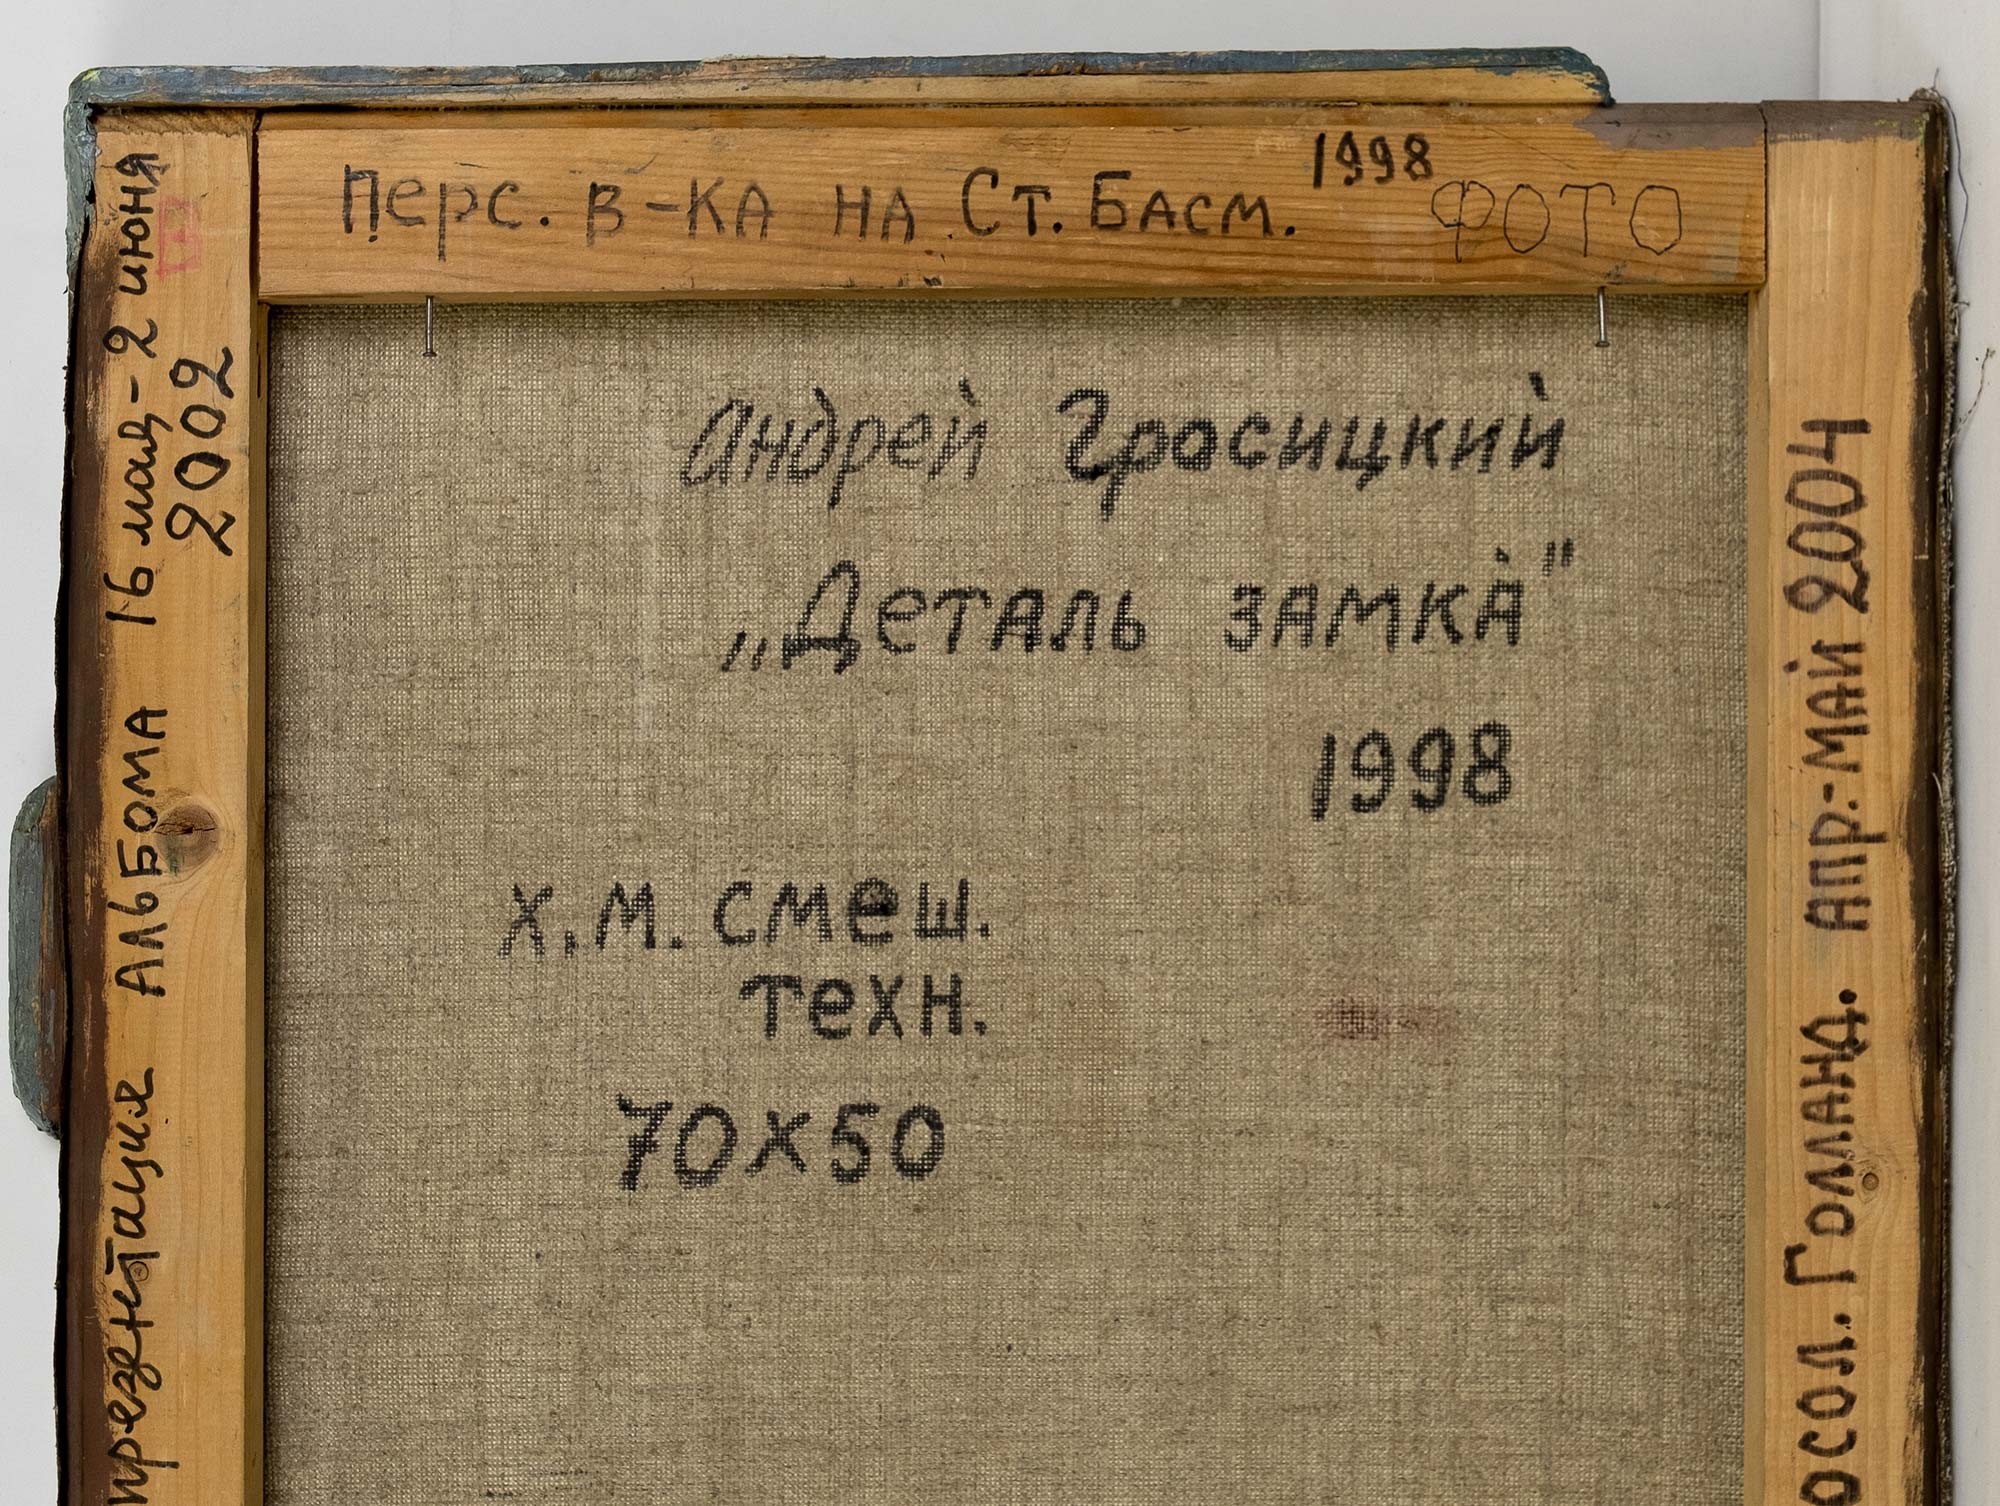 Перс. в-ка на Ст. Басм. 1998 ФОТО
Андрей Гросицкий
„Деталь замка́"
1998
х.м. смеш.
техн.
70х50
презентация Альбома 16 мая - 2 июня
2002
осол. Голланд. апр.-май 2004